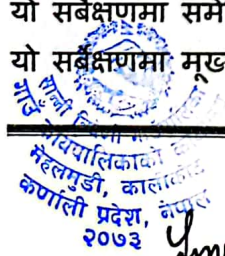 यो सर्बेक्षणमा समे
यो सर्बेक्षणमा मूख
गाउँ कार्यपालिकाको
मेहलमुडी, कालीकोट
कर्णाली प्रदेश, नेपाल
२०७३